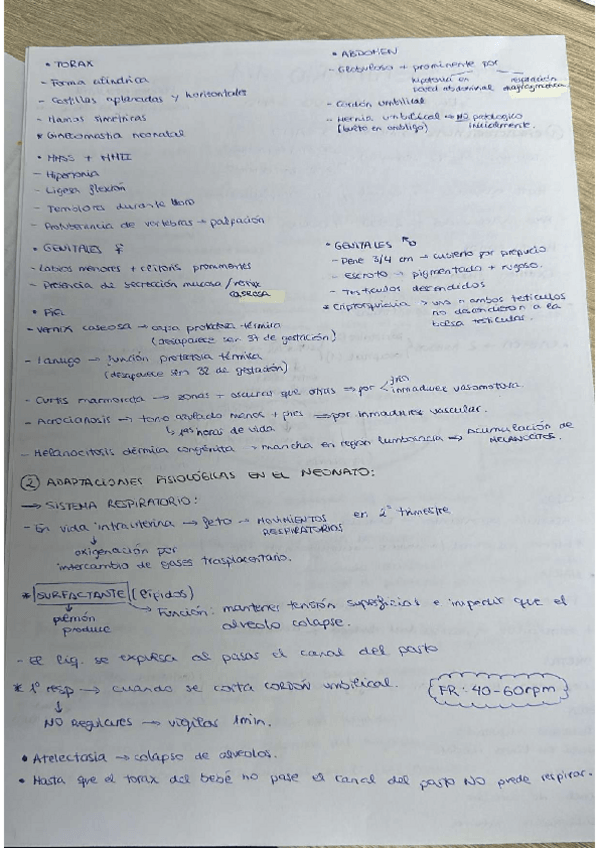 • TORAX
- Forma cilíndrica
- Costillas aplanadas y horizontales
- Mamas simétricas
* Ginecomastia neonatal
• ABDOMEN
- Globuloso + prominente por
hipotonía en pared abdominal
respiración diafragmática
- Cordón umbilical
- Hernia umbilical → NO patológico
(bulto en ombligo) inicialmente.
• MMSS + MMII
- Hipertonía
- Ligera flexión
- Temblores durante lloro
- Protuberancia de vertebras → palpación
• GENITALES ♀
- Labios menores + clítoris prominentes
- Presencia de secreción mucosa / vernix
caseosa
• GENITALES ♂
- Pene 3/4 cm → cubierto por prepucio
- Escroto → pigmentado + rugoso.
- Testículos descendidos
* Criptorquidia → uno o ambos testículos
no descendieron a la
bolsa testicular.
• PIEL
- Vernix caseosa → capa protectora térmica
(desaparece sem 37 de gestación)
- Lanugo → función protectora térmica
(desaparece sem 32 de gestación)
- Cutis marmorata → zonas + oscuras que otras ⇒ por < frío
inmadurez vasomotora.
- Acrocianosis → tono azulado manos + pies ⇒ por inmadurez vascular.
↳ 1as horas de vida
- Melanocitosis dérmica congénita → mancha en region lumbosacra ⇒ Acumulación de
MELANOCITOS.
② ADAPTACIONES FISIOLÓGICAS EN EL NEONATO:
→ SISTEMA RESPIRATORIO:
- En vida intrauterina → feto → MOVIMIENTOS
RESPIRATORIOS en 2º trimestre
↓
oxigenación por
intercambio de gases trasplacentario.
* SURFACTANTE (lípidos)
↓
pulmón
produce
→ Función: mantener tensión superficial e impedir que el
alveolo colapse.
- El liq. se expulsa al pasar el canal del parto
* 1º resp → cuando se corta CORDÓN umbilical.
FR: 40-60rpm
↓
NO Regulares → vigilar 1min.
• Atelectasia → colapso de alveolos.
• Hasta que el torax del bebé no pase el canal del parto NO puede respirar.